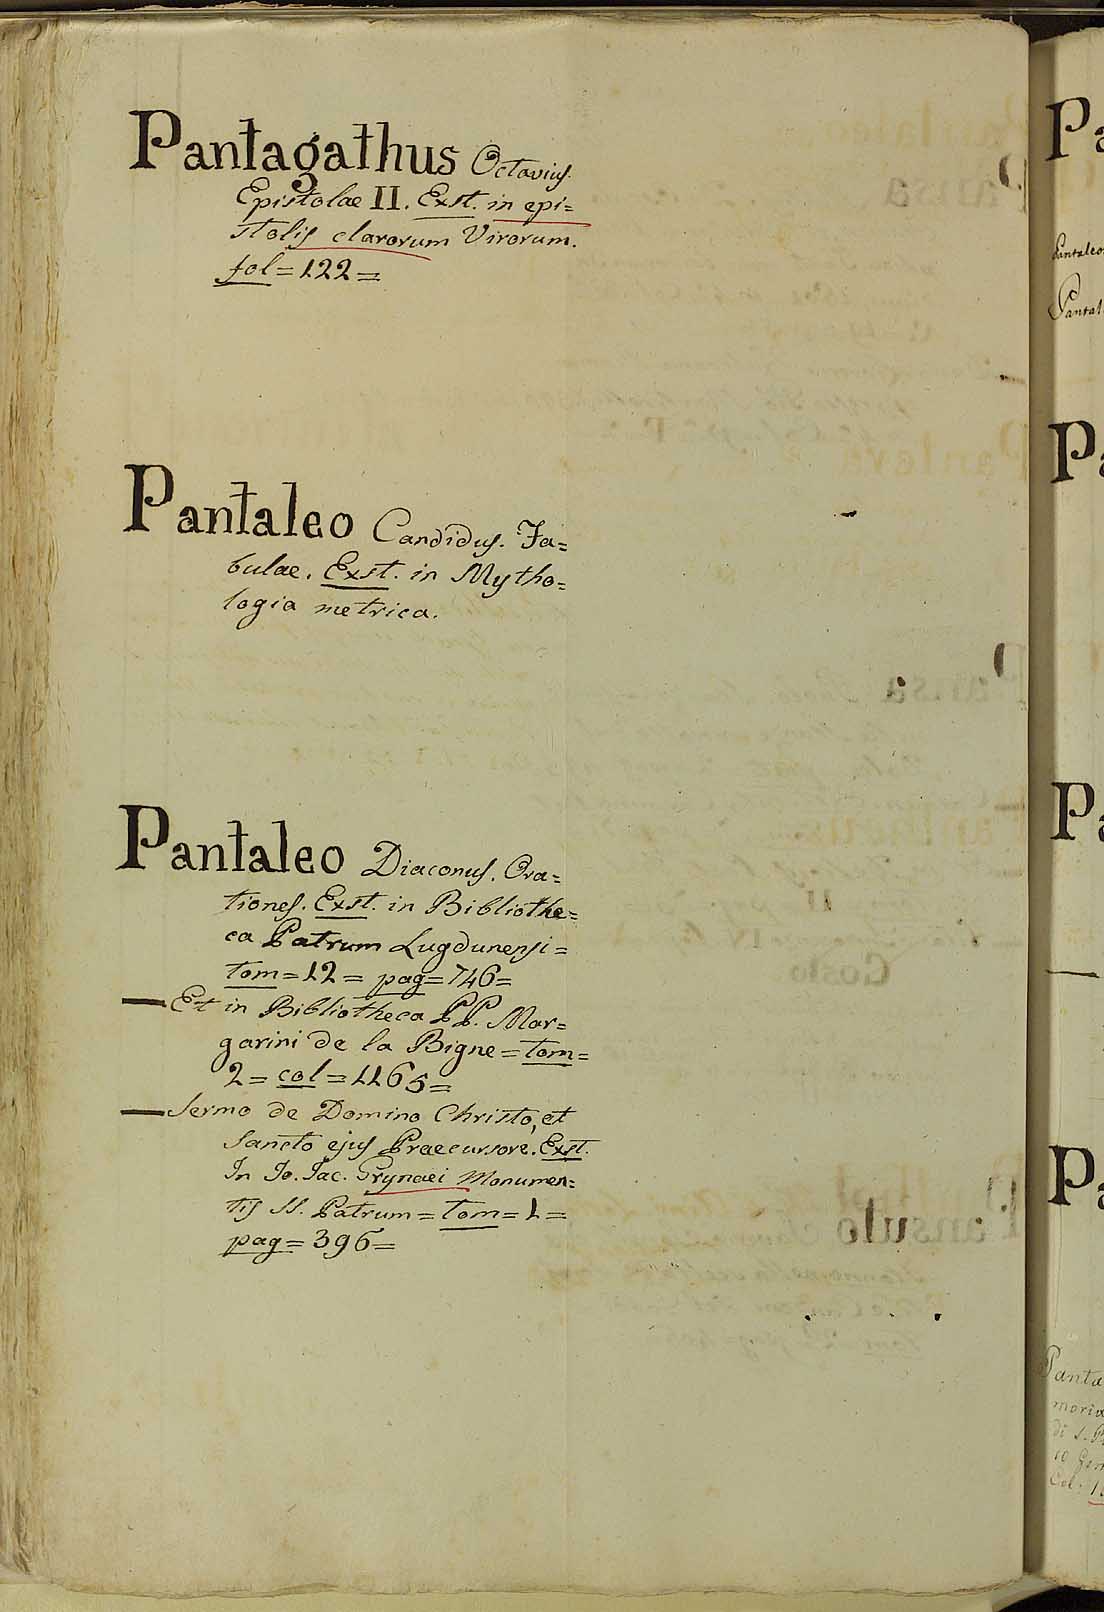 Pantagathus Octavius.
Epistolae II. Exst. in epi=
stolis clarorum Virorum.
fol=122=
Pantaleo Candidus. Fa=
bulae. Exst. in Mytho=
logia metrica.
Pantaleo Diaconus. Ora=
tiones. Exst. in Bibliothe=
ca Patrum Lugdunensi=
tom=12= pag=746=
— Et in Bibliotheca PP. Mar=
garini de la Bigne=tom=
2=col=1165=
— Sermo de Domino Christo, et
Sancto ejus Praecursore. Exst.
In Jo. Jac. Grynaei Monumen=
tis SS. Patrum=tom=1=
pag=396=